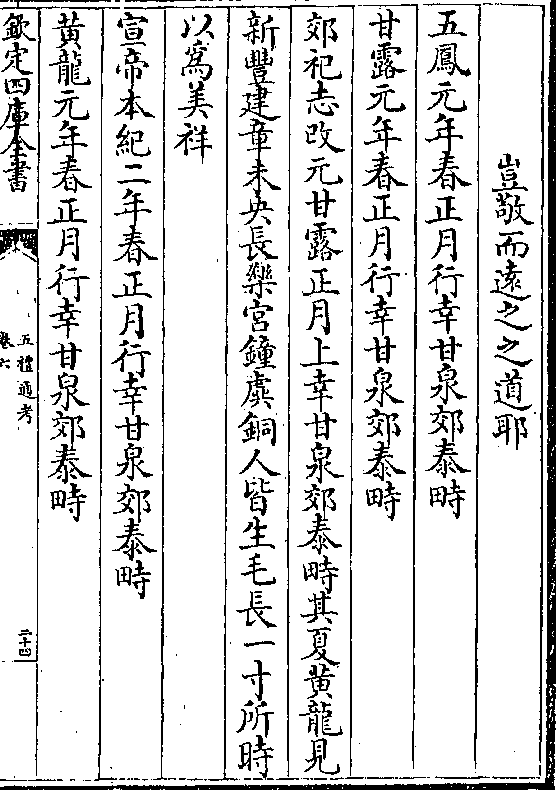 豈敬而遠之之道耶
五鳳元年春正月行幸甘泉郊泰畤
甘露元年春正月行幸甘泉郊泰畤
郊祀志改元甘露正月上幸甘泉郊泰畤其夏黄龍見
新豐建章未央長樂宫鐘虡銅人皆生毛長一寸所時
以為美祥
宣帝本紀二年春正月行幸甘泉郊泰畤
黄龍元年春正月行幸甘泉郊泰畤
欽定四庫全書
五禮通考
卷六
二十四